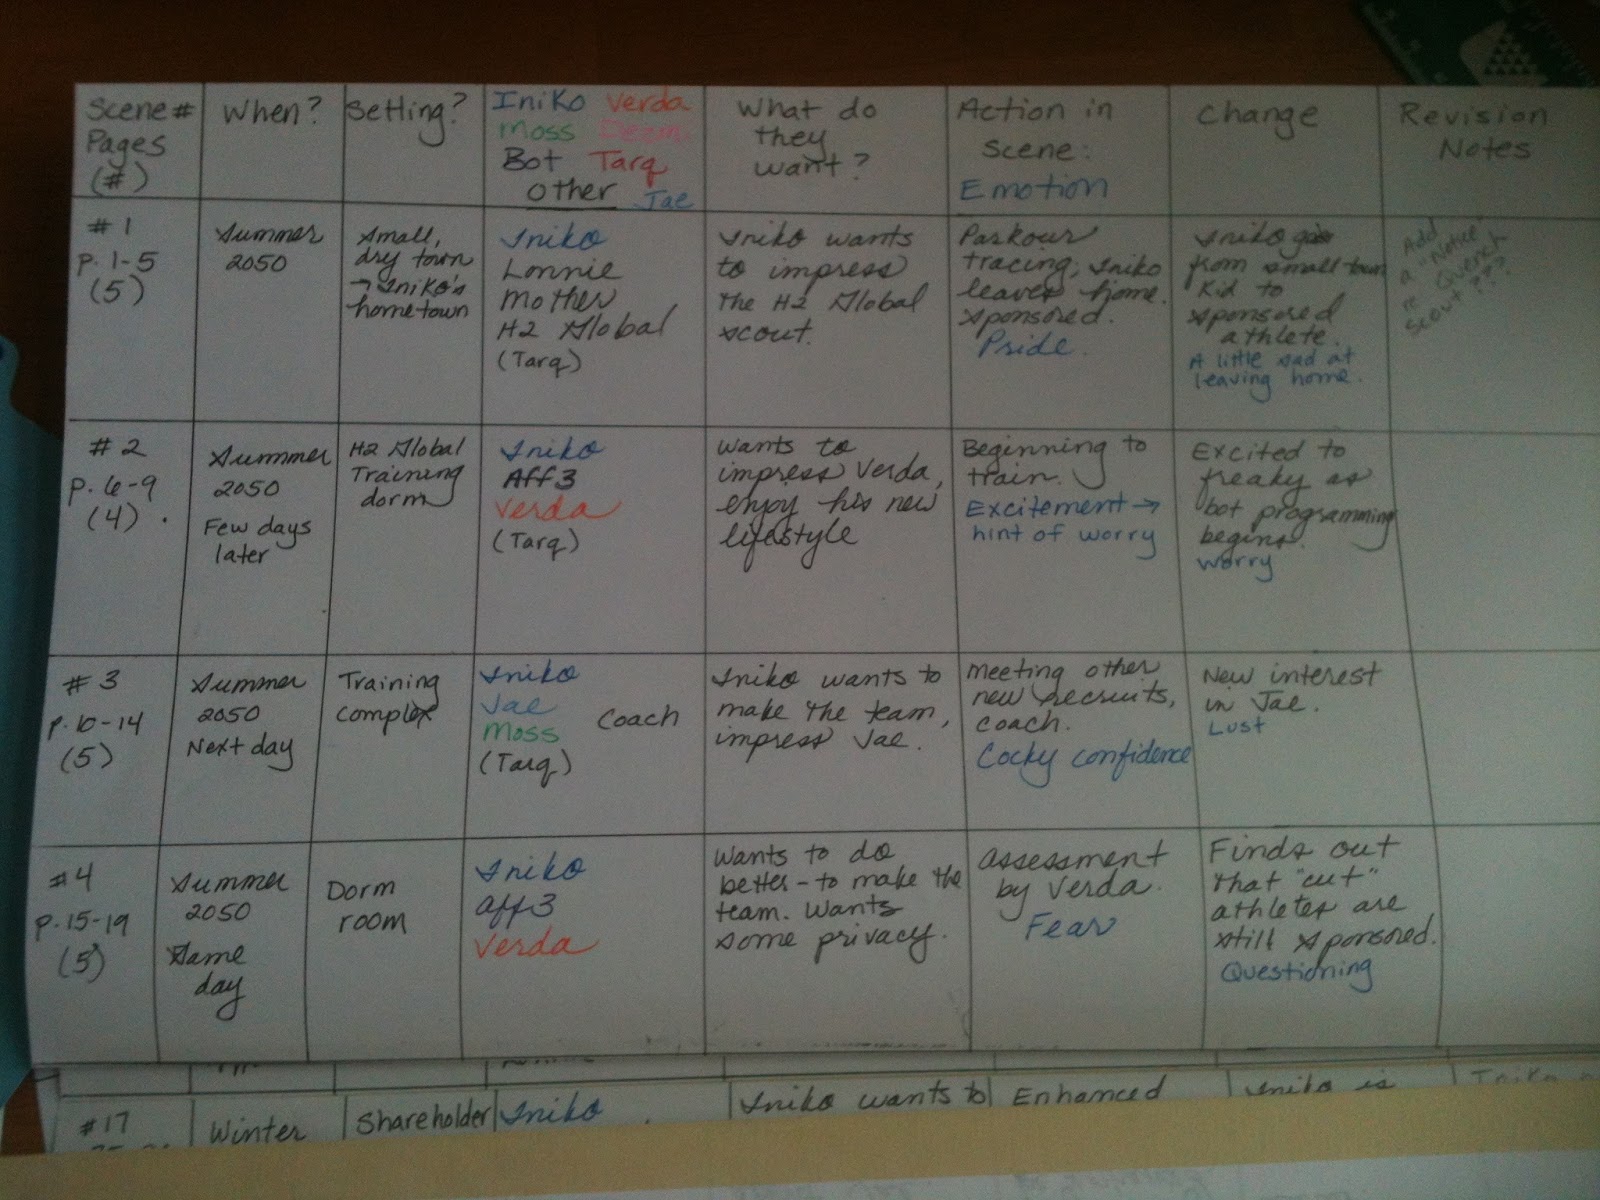 Scene #
Pages
(#)
When?
Setting?
Iniko Verda
Moss Dezm.
Bot Targ
Other Jae
What do
they
want?
Action in
Scene:
Emotion
Change
Revision
Notes
#1
p. 1-5
(5)
Summer
2050
Small,
dry town
→ Iniko's
hometown
Iniko
Lonnie
Mother
H2 Global
(Targ)
Iniko wants
to impress
the H2 Global
scout.
Parkour
tracing, Iniko
leaves home.
Sponsored.
Pride.
Iniko goes
from small town
kid to
sponsored
athlete.
A little sad at
leaving home.
Add
a "Notice"
re Quench
scout???
#2
p. 6-9
(4).
Summer
2050
Few days
later
H2 Global
Training
dorm
Iniko
Aff3
Verda
(Targ)
Wants to
impress Verda,
enjoy his new
lifestyle
Beginning to
train.
Excitement →
hint of worry
Excited to
freaky as
bot programming
begins.
Worry
#3
p. 10-14
(5)
Summer
2050
Next day
Training
complex
Iniko
Jae
Moss Coach
(Targ)
Iniko wants to
make the team,
impress Jae.
Meeting other
new recruits,
coach.
Cocky confidence
New interest
in Jae.
Lust
#4
p. 15-19
(5)
Summer
2050
Same
day
Dorm
room
Iniko
Aff3
Verda
Wants to do
better - to make the
team. Wants
some privacy.
Assessment
by Verda.
Fear
Finds out
that "cut"
athletes are
still sponsored.
Questioning
#17
Winter
Shareholder
Iniko
Iniko wants to
Enhanced
Iniko is
Iniko